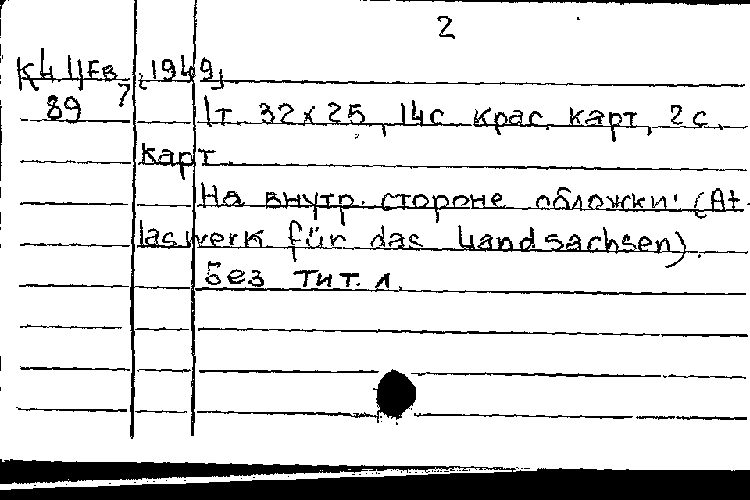 2
К4 Ц/Ев 7 [1949]
89 1т. 32х25, 14с крас. карт, 2с.
карт.
На внутр. стороне обложки: (At-
laswerk für das Landsachsen).
Без тит. л.